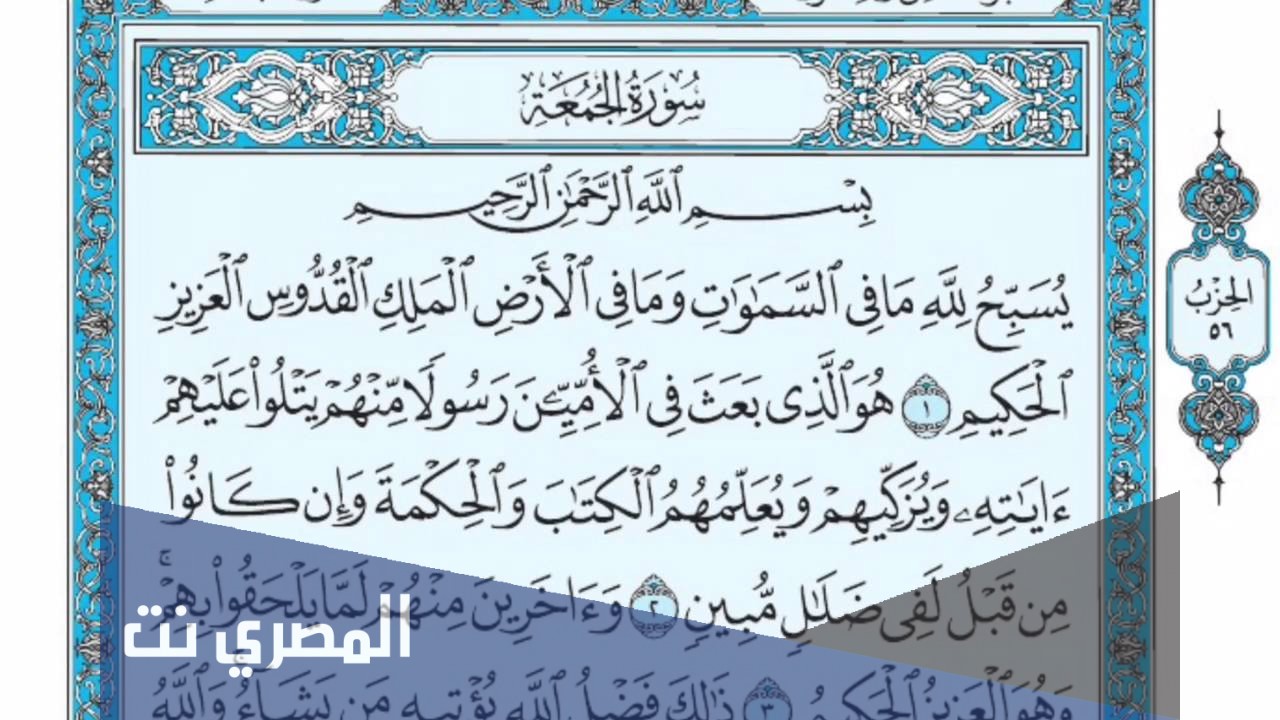 سُورَةُ الجُمُعَةِ
بِسْمِ ٱللَّهِ ٱلرَّحْمَٰنِ ٱلرَّحِيمِ
يُسَبِّحُ لِلَّهِ مَا فِى ٱلسَّمَٰوَٰتِ وَمَا فِى ٱلْأَرْضِ ٱلْمَلِكِ ٱلْقُدُّوسِ ٱلْعَزِيزِ
ٱلْحَكِيمِ ١ هُوَ ٱلَّذِى بَعَثَ فِى ٱلْأُمِّيِّۦنَ رَسُولًا مِّنْهُمْ يَتْلُوا۟ عَلَيْهِمْ
ءَايَٰتِهِۦ وَيُزَكِّيهِمْ وَيُعَلِّمُهُمُ ٱلْكِتَٰبَ وَٱلْحِكْمَةَ وَإِن كَانُوا۟
مِن قَبْلُ لَفِى ضَلَٰلٍ مُّبِينٍ ٢ وَءَاخَرِينَ مِنْهُمْ لَمَّا يَلْحَقُوا۟ بِهِمْۚ
وَهُوَ ٱلْعَزِيزُ ٱلْحَكِيمُ ٣ ذَٰلِكَ فَضْلُ ٱللَّهِ يُؤْتِيهِ مَن يَشَآءُۚ وَٱللَّهُ
الحِزْبُ
٥٦
المصري نت